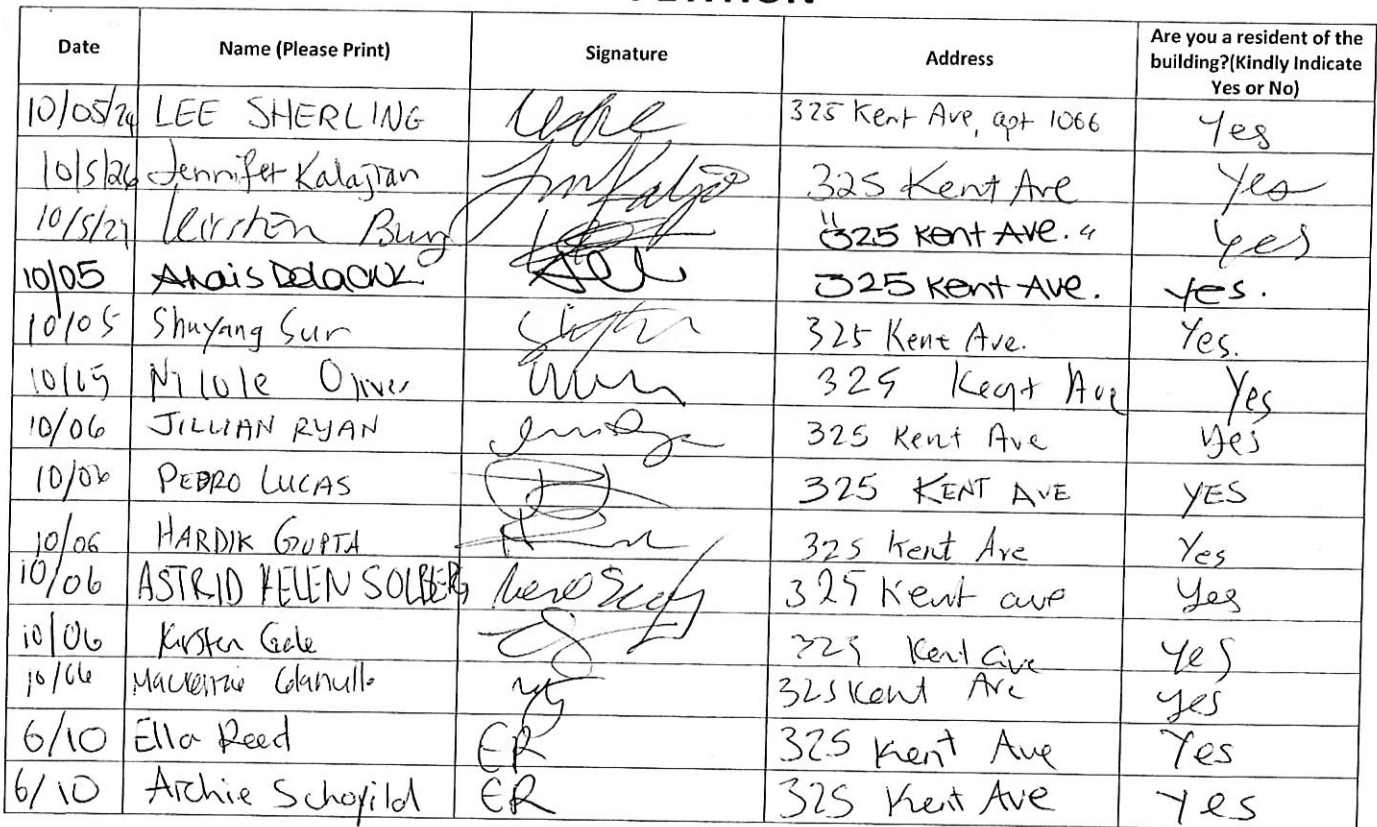 PETITION
Date Name (Please Print) Signature Address Are you a resident of the building?(Kindly Indicate Yes or No)
10/05/24 LEE SHERLING 325 Kent Ave, apt 1066 Yes
10/5/24 Jennifer Kalajian 325 Kent Ave Yes
10/5/24 325 Kent Ave. Yes
10/05 Anais 325 Kent Ave. Yes.
10/05 Shuyang Sun 325 Kent Ave. Yes.
10/05 Nicole Oliver 325 Kent Ave Yes
10/06 JILLIAN RYAN 325 Kent Ave Yes
10/06 PEDRO LUCAS 325 KENT AVE YES
10/06 HARDIK GUPTA 325 Kent Ave Yes
10/06 ASTRID HELEN SOLBERG 325 Kent ave Yes
10/06 325 Kent ave Yes
10/06 Mackenzie 325 Kent Ave yes
6/10 Ella Reed ER 325 Kent Ave Yes
6/10 Archie Schofild ER 325 Kent Ave Yes